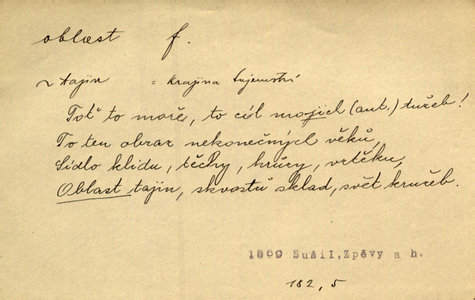 oblast f.
~ tajin = krajina tajemství
Toť to moře, to cíl mojich (aut.) tužeb!
To ten obraz nekonečných věků,
Sídlo klidu, těchy, hrůzy, vzteku,
Oblast tajin, skvostů sklad, svět kružeb.
1869 Sušil, Zpěvy a h.
182, 5